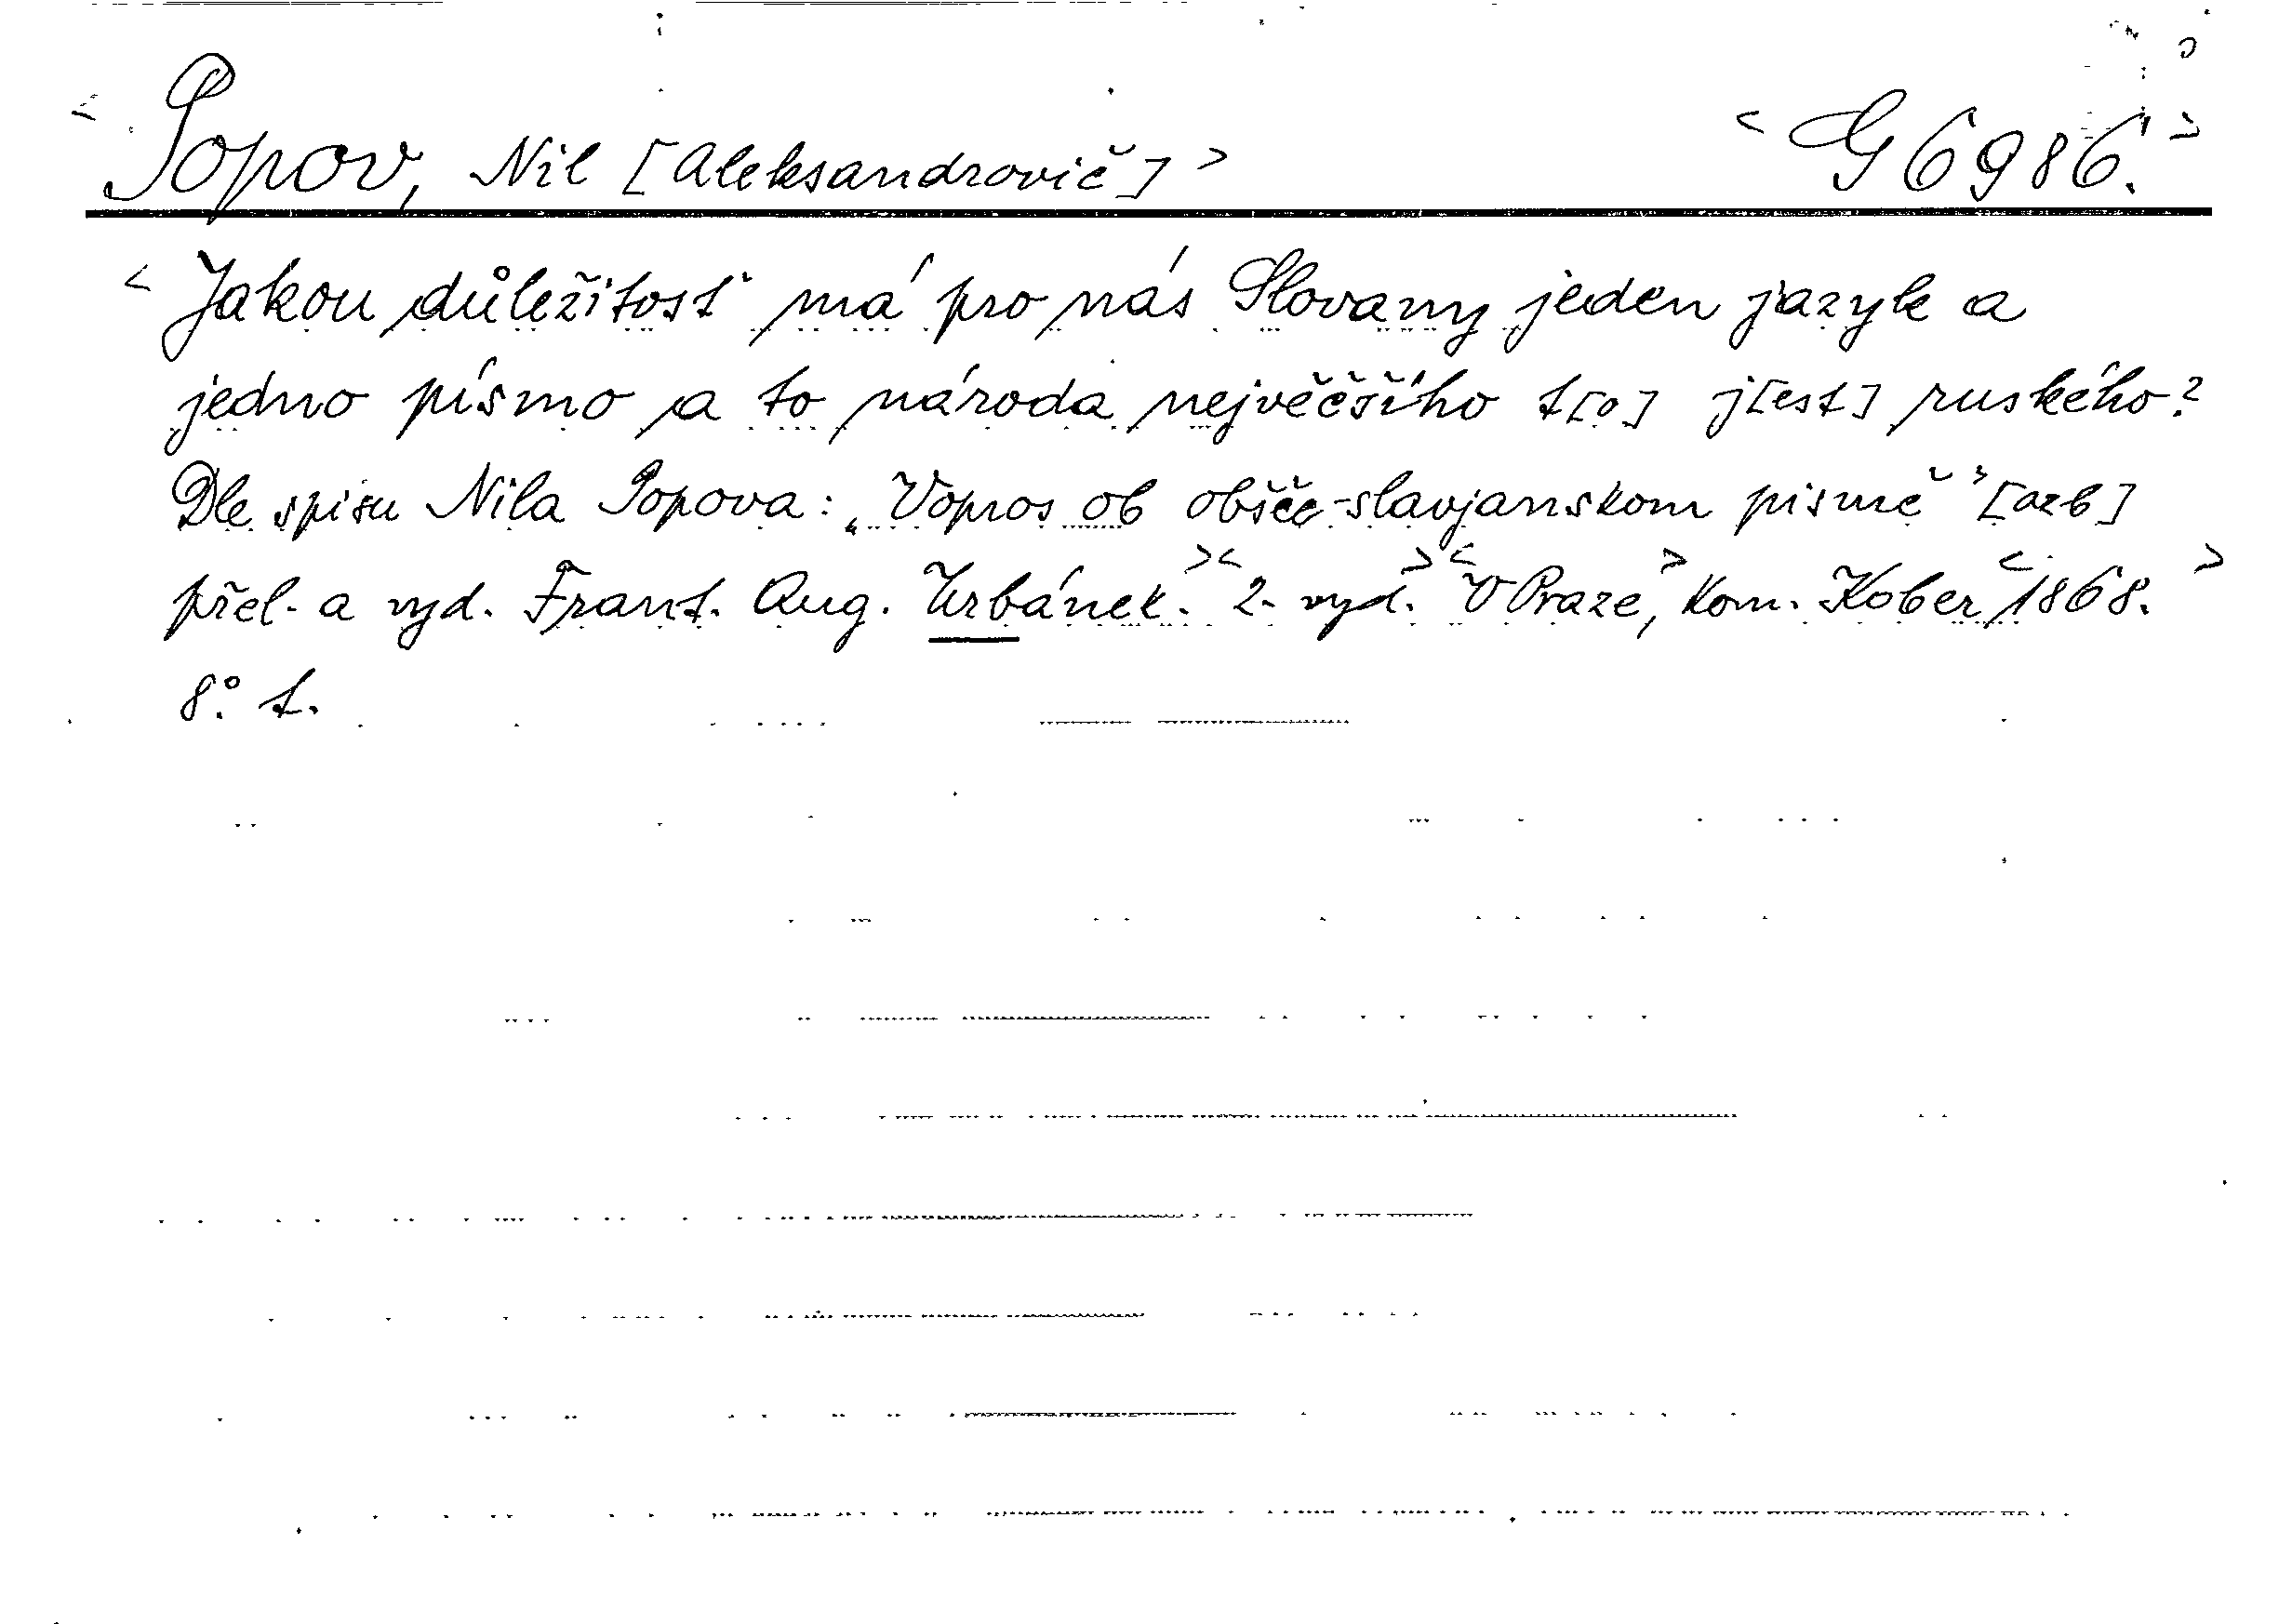 < Popov, Nil [Aleksandrovič] > < G 6986. >
< Jakou důležitost má pro nás Slovany jeden jazyk a
jedno písmo a to národa největšího t[o] j[est] ruského?
Dle spisu Nila Popova: „Vopros ob obšče-slavjanskom pismě" [azb]
přel. a vyd. Frant. Aug. Urbánek. >< 2. vyd. >< V Praze, > Kom. Kober < 1868. >
8° t.